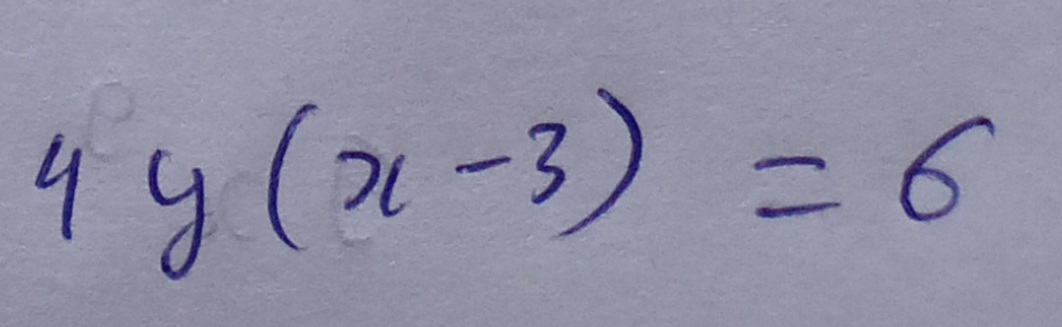 4y(x-3) = 6